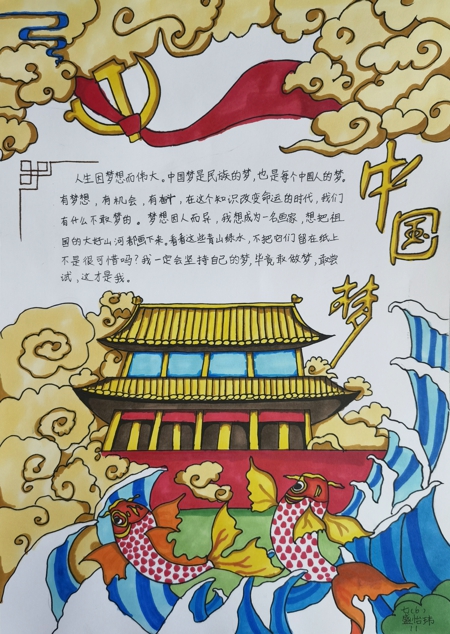 中国梦
人生因梦想而伟大。中国梦是民族的梦，也是每个中国人的梦，
有梦想，有机会，有奋斗，在这个知识改变命运的时代，我们
有什么不敢梦的。梦想因人而异，我想成为一名画家，想把祖
国的大好山河都画下来，看看这些青山绿水，不把它们留在纸上
不是很可惜吗？我一定会坚持自己的梦，毕竟敢做梦，敢尝
试，这才是我。
盛怡玮
11